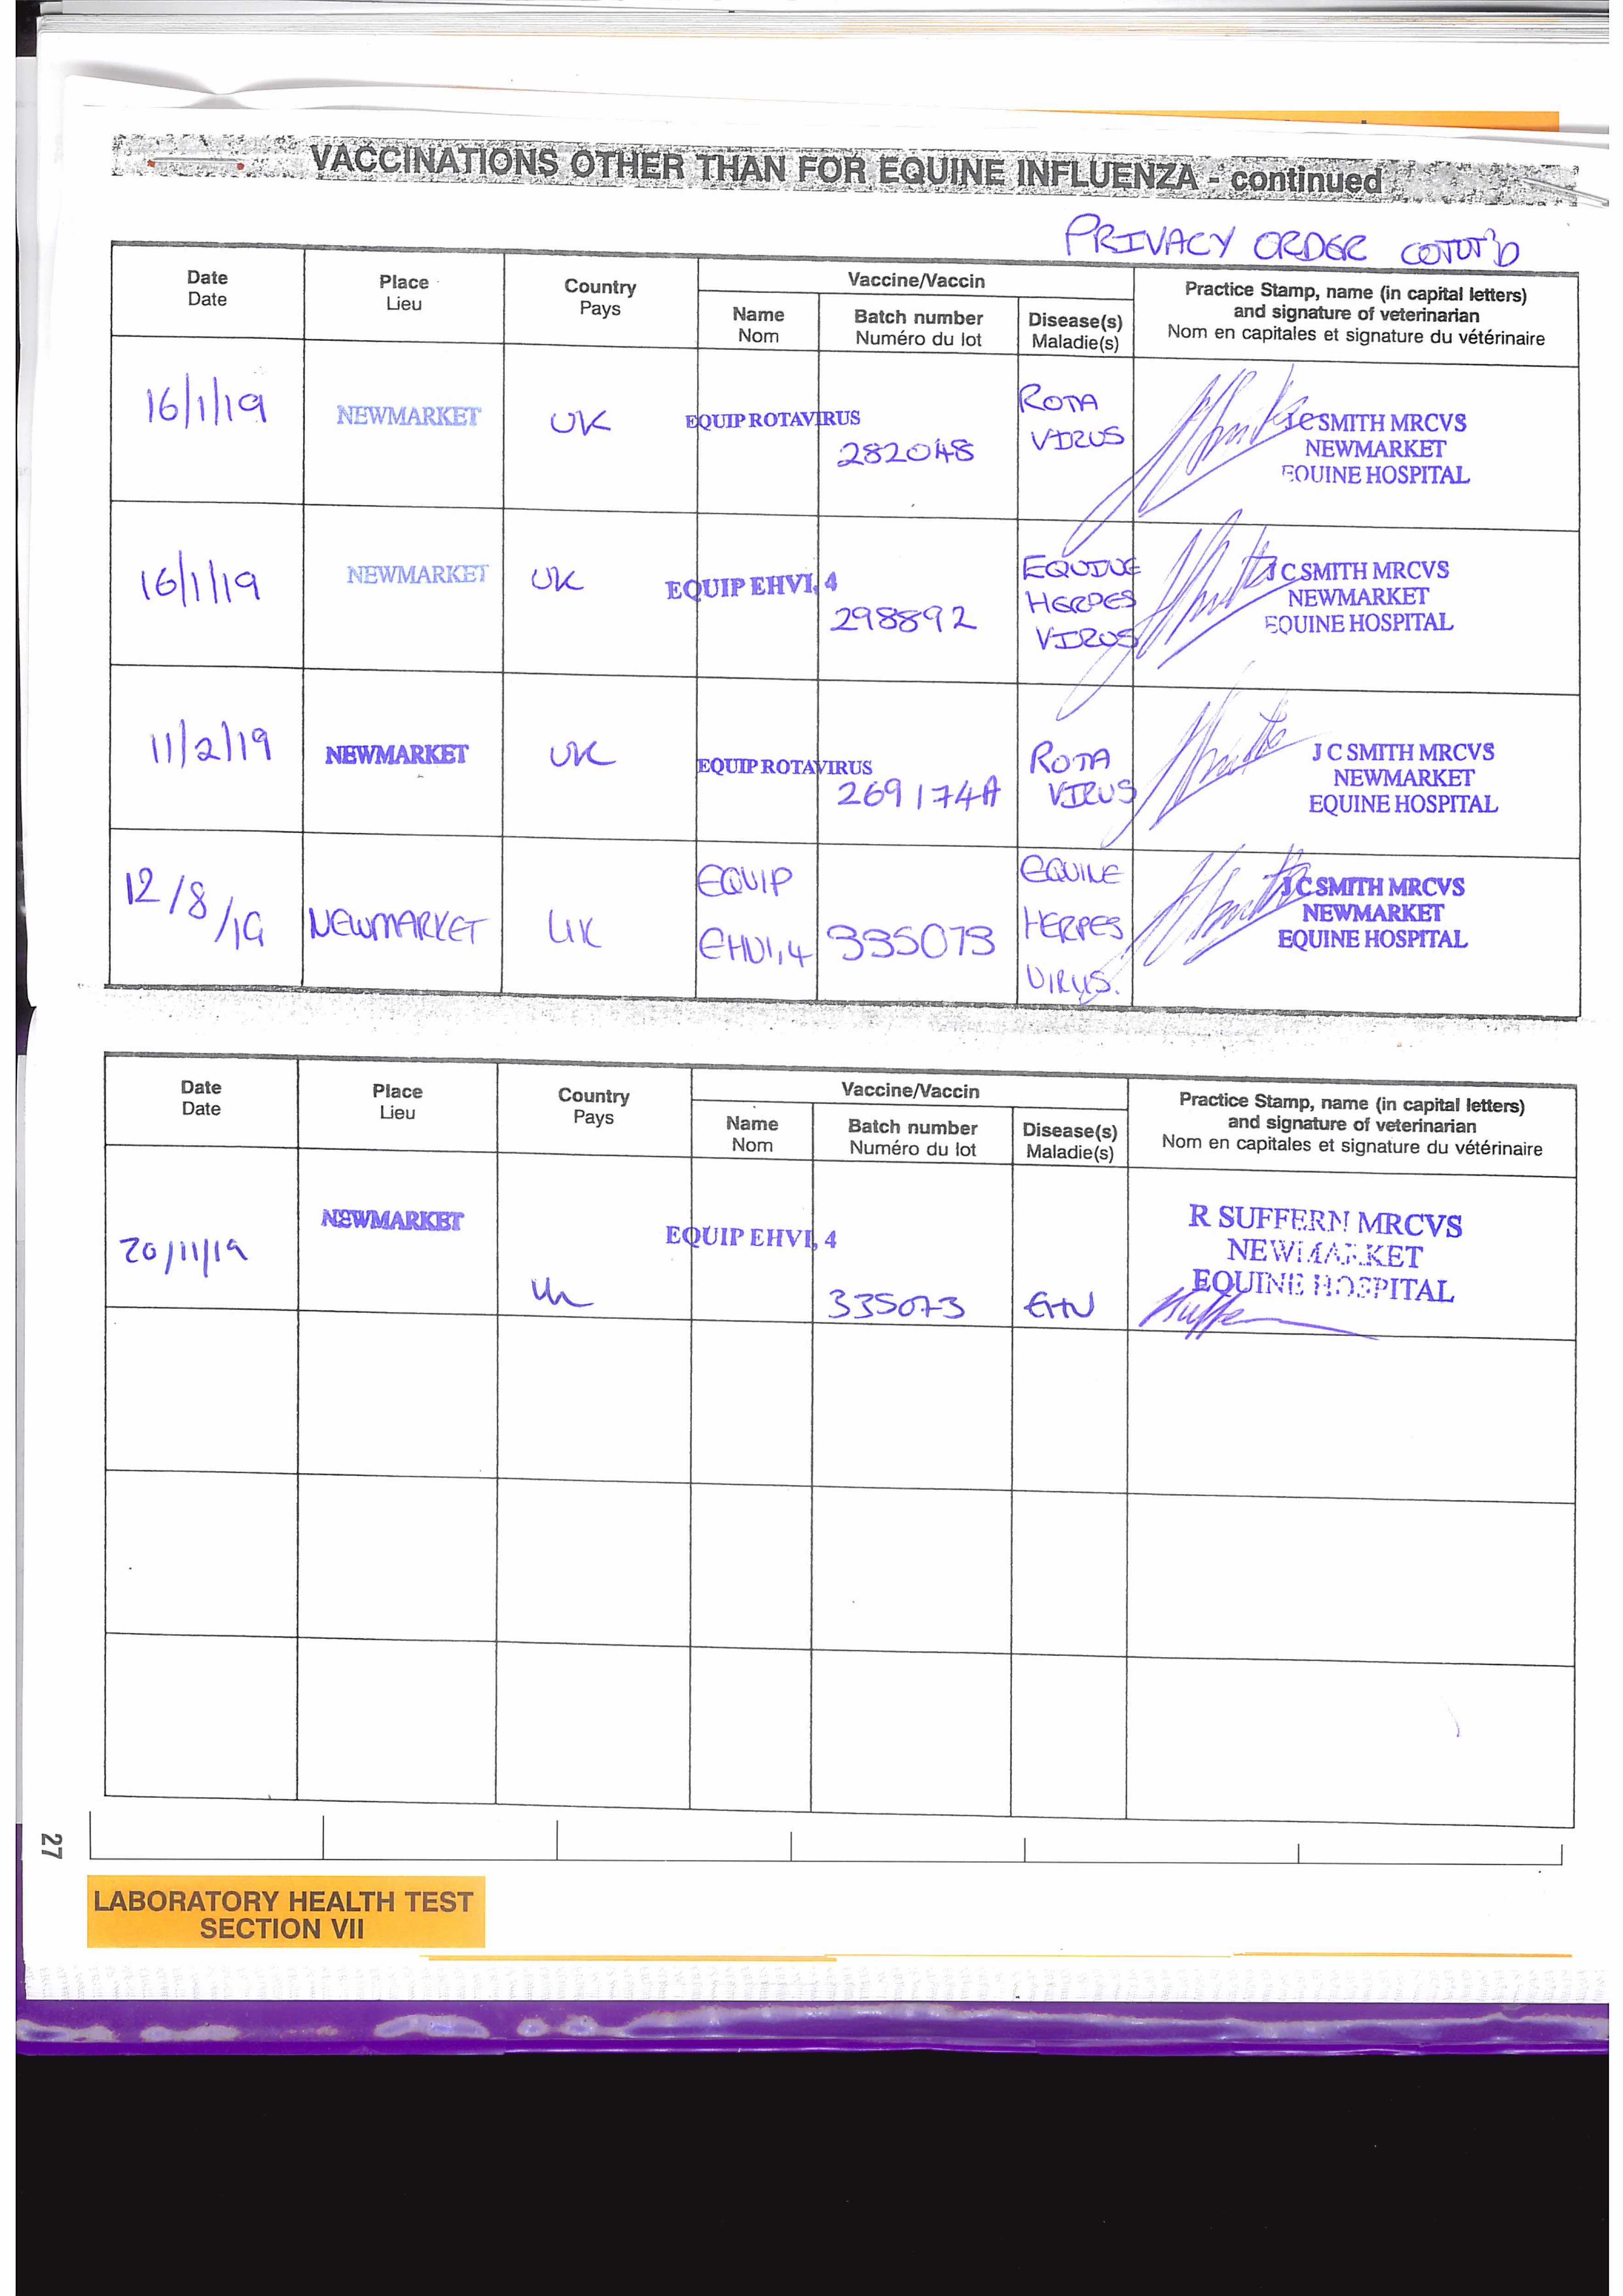 VACCINATIONS OTHER THAN FOR EQUINE INFLUENZA - continued
PRIVACY ORDER CONT'D
Date
Date
Place
Lieu
Country
Pays
Vaccine/Vaccin
Name
Nom
Batch number
Numéro du lot
Disease(s)
Maladie(s)
Practice Stamp, name (in capital letters)
and signature of veterinarian
Nom en capitales et signature du vétérinaire
16/1/19
NEWMARKET
UK
EQUIP ROTAVIRUS
282048
ROTA
VIRUS
J C SMITH MRCVS
NEWMARKET
EQUINE HOSPITAL
16/1/19
NEWMARKET
UK
EQUIP EHV1, 4
298892
EQUINE
HERPES
VIRUS
J C SMITH MRCVS
NEWMARKET
EQUINE HOSPITAL
11/2/19
NEWMARKET
UK
EQUIP ROTAVIRUS
269174A
ROTA
VIRUS
J C SMITH MRCVS
NEWMARKET
EQUINE HOSPITAL
12/8/19
NEWMARKET
UK
EQUIP
EHV1,4
335073
EQUINE
HERPES
VIRUS.
J C SMITH MRCVS
NEWMARKET
EQUINE HOSPITAL
Date
Date
Place
Lieu
Country
Pays
Vaccine/Vaccin
Name
Nom
Batch number
Numéro du lot
Disease(s)
Maladie(s)
Practice Stamp, name (in capital letters)
and signature of veterinarian
Nom en capitales et signature du vétérinaire
20/11/19
NEWMARKET
UK
EQUIP EHV1, 4
335073
EHV
R SUFFERN MRCVS
NEWMARKET
EQUINE HOSPITAL
27
LABORATORY HEALTH TEST
SECTION VII